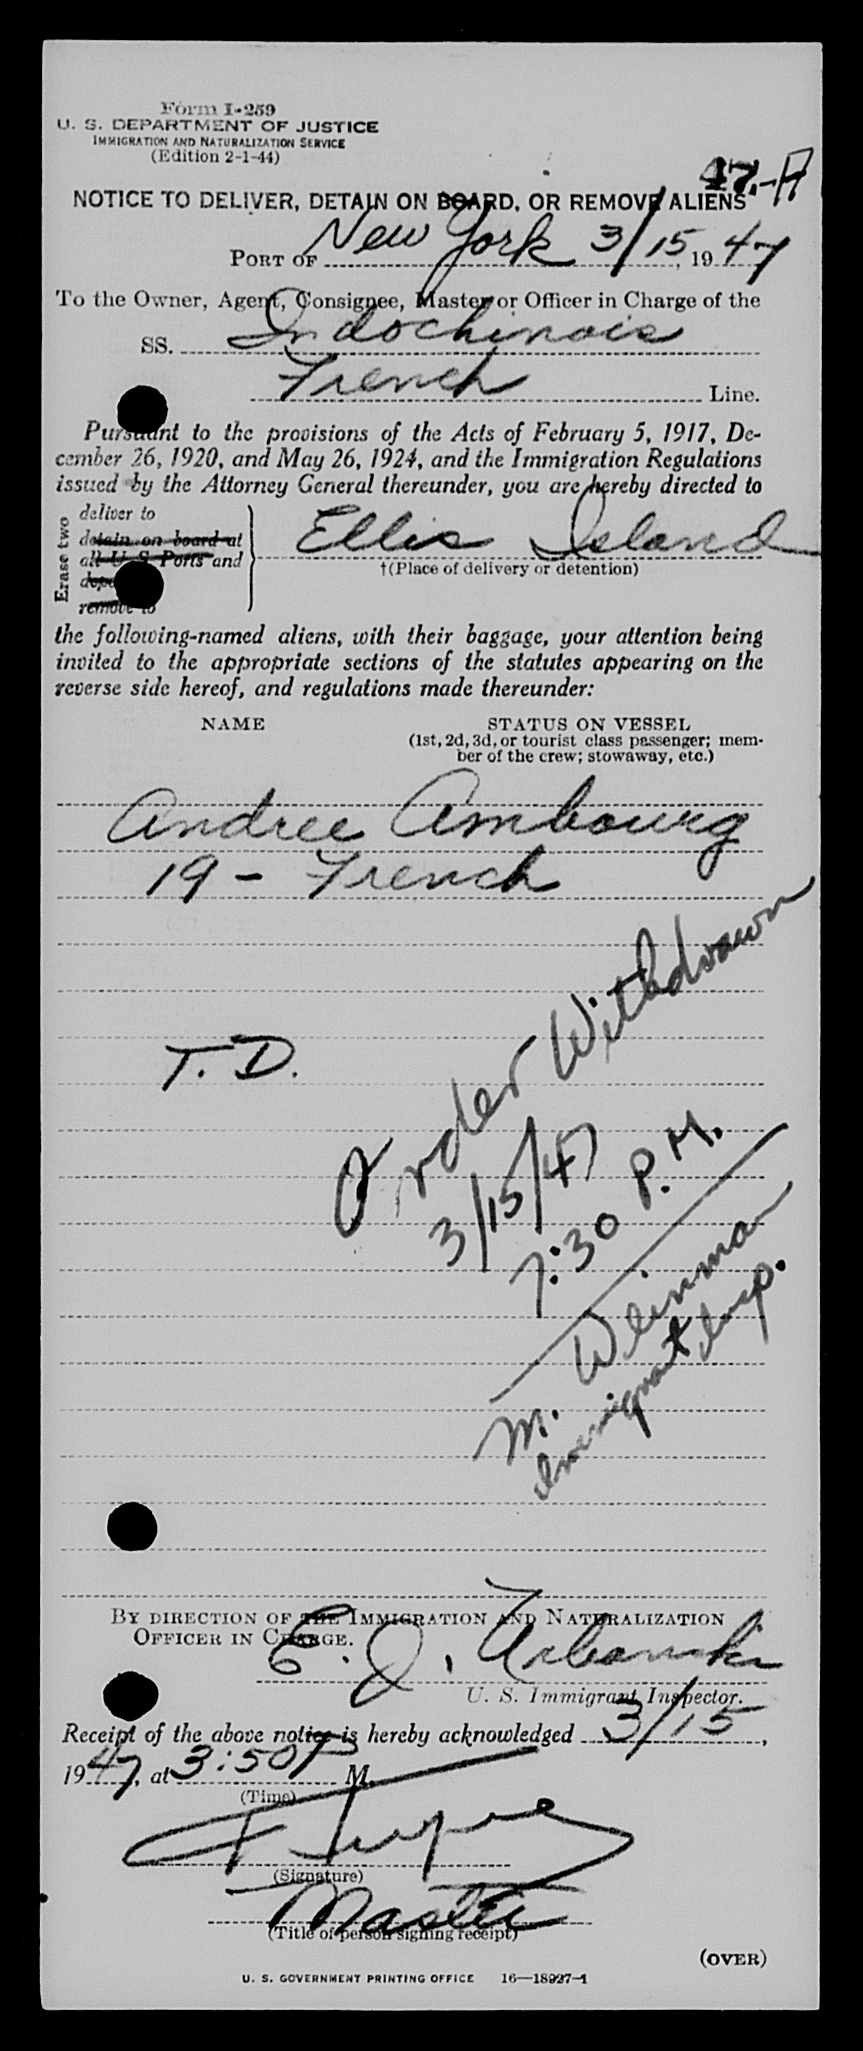 Form I-259
U. S. DEPARTMENT OF JUSTICE
IMMIGRATION AND NATURALIZATION SERVICE
(Edition 2-1-44)
47.-A
NOTICE TO DELIVER, DETAIN ON BOARD, OR REMOVE ALIENS
PORT OF New York 3/15, 1947
To the Owner, Agent, Consignee, Master or Officer in Charge of the
SS. Indochinois
French Line.
Pursuant to the provisions of the Acts of February 5, 1917, De-
cember 26, 1920, and May 26, 1924, and the Immigration Regulations
issued by the Attorney General thereunder, you are hereby directed to
Erase two
deliver to
detain on board at
all U S Ports and
remove to
Ellis Island
†(Place of delivery or detention)
the following-named aliens, with their baggage, your attention being
invited to the appropriate sections of the statutes appearing on the
reverse side hereof, and regulations made thereunder:
NAME STATUS ON VESSEL
(1st, 2d, 3d, or tourist class passenger; mem-
ber of the crew; stowaway, etc.)
Andree Ambourg
19 - French
T. D.
Order Withdrawn
3/15/47
7:30 P.M.
M. Weinman
Immigrant Insp.
BY DIRECTION OF THE IMMIGRATION AND NATURALIZATION
OFFICER IN CHARGE.
E. J. Urbanski
U. S. Immigrant Inspector.
Receipt of the above notice is hereby acknowledged 3/15,
1947, at 3:50 P M.
(Time)
(Signature)
Master
(Title of person signing receipt)
(OVER)
U. S. GOVERNMENT PRINTING OFFICE 16—18927-1